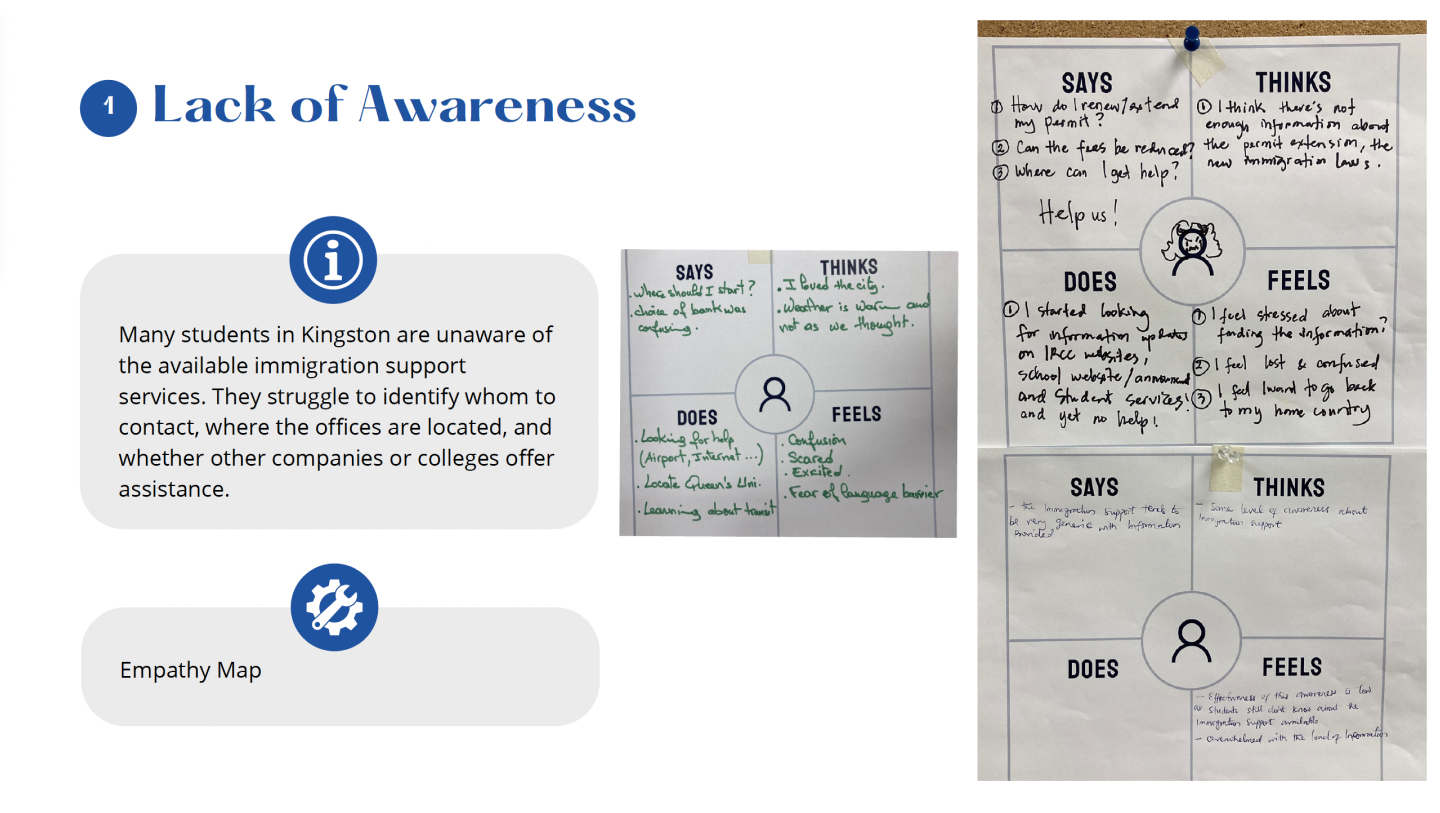 1 Lack of Awareness
Many students in Kingston are unaware of
the available immigration support
services. They struggle to identify whom to
contact, where the offices are located, and
whether other companies or colleges offer
assistance.
Empathy Map
SAYS
. where should I start?
. choice of bank was
confusing.
THINKS
. I loved the city.
. Weather is warm and
not as we thought.
DOES
. Looking for help
(Airport, Internet ...)
. Locate Queen's Uni.
. Learning about transit
FEELS
. Confusion
. Scared
. Excited.
. Fear of language barrier
SAYS
① How do I renew/extend
my permit?
② Can the fees be reduced?
③ Where can I get help?
Help us!
THINKS
① I think there's not
enough information about
the permit extension, the
new immigration laws.
DOES
① I started looking
for information updates
on IRCC websites,
school website/
and student services!
and yet no help!
FEELS
① I feel stressed about
finding the information?
② I feel lost & confused
③ I feel I want to go back
to my home country
SAYS
- the Immigration support tend to
be very generic with information
provided
THINKS
- Some level of awareness about
Immigration support
DOES
FEELS
- Effectiveness of this awareness is low
as students still don't know about the
Immigration support available
- Overwhelmed with the load of Information